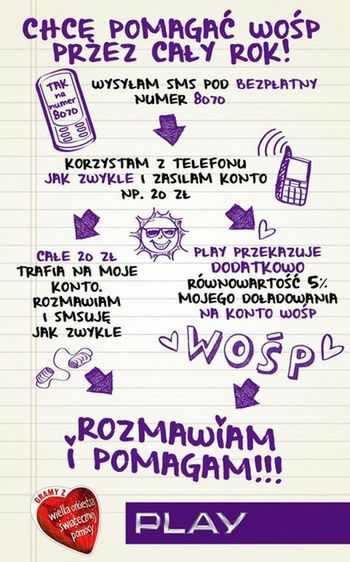 CHCĘ POMAGAĆ WOŚP
PRZEZ CAŁY ROK!
TAK
na
numer
8070
WYSYŁAM SMS POD BEZPŁATNY
NUMER 8070
KORZYSTAM Z TELEFONU
JAK ZWYKLE I ZASILAM KONTO
NP. 20 ZŁ
CAŁE 20 ZŁ
TRAFIA NA MOJE
KONTO.
ROZMAWIAM
I SMSUJĘ
JAK ZWYKLE
PLAY PRZEKAZUJE
DODATKOWO
RÓWNOWARTOŚĆ 5%
MOJEGO DOŁADOWANIA
NA KONTO WOŚP
WOŚP
ROZMAWIAM
I POMAGAM!!!
GRAMY Z
wielka orkiestra
świątecznej
pomocy
PLAY